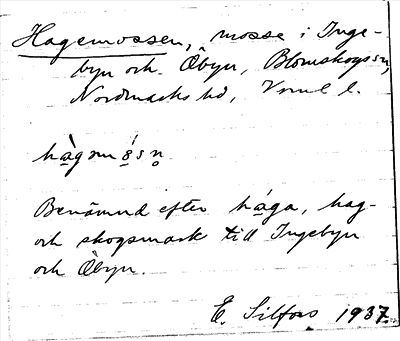 Hagemossen, mosse i Inge-
byn och Öbyn, Blomskogs sn,
Nordmarks hd, Vrml l.
hàgmɷ́sn̥
Benämnd efter haga, hag-
och skogsmark till Ingebyn
och Öbyn.
E. Silfors 1937.